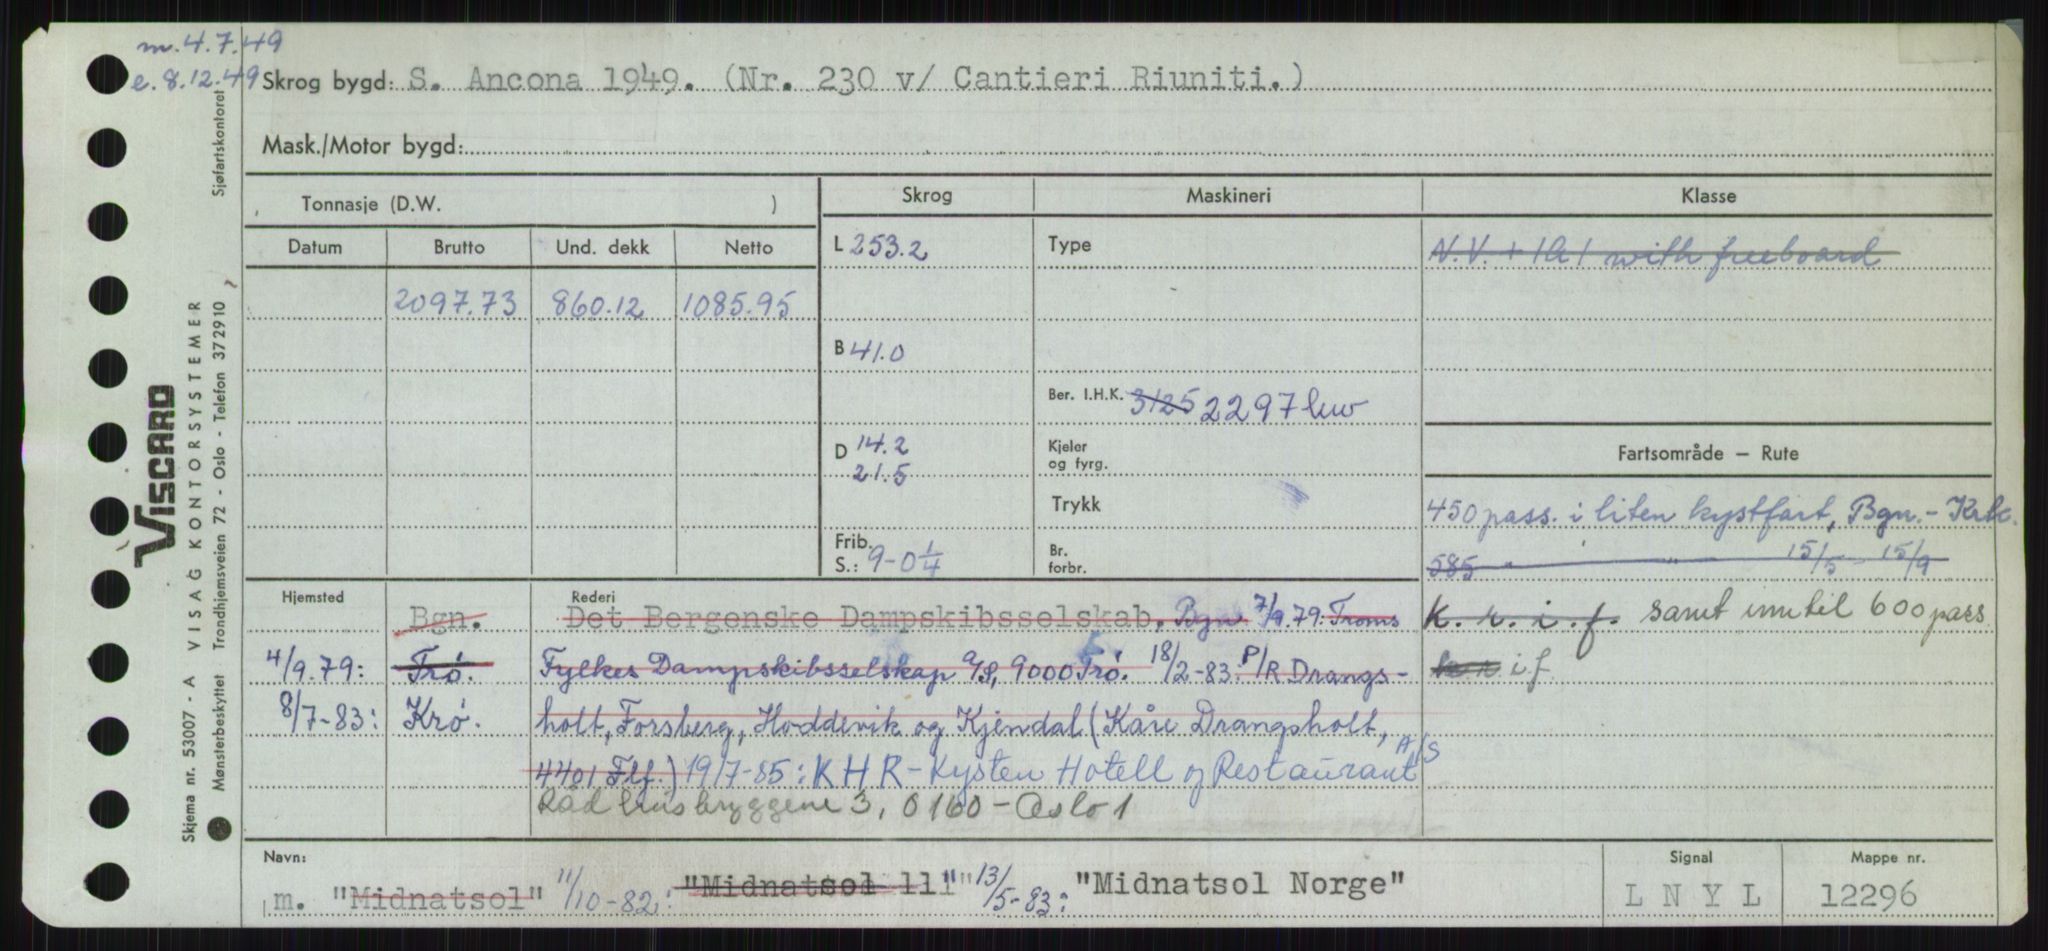 m. 4.7.49
e. 8.12.49
Skrog bygd: S. Ancona 1949. (Nr. 230 v/ Cantieri Riuniti.)
Mask./Motor bygd:
Tonnasje (D.W. )
Skrog
Maskineri
Klasse
Datum Brutto Und. dekk Netto
2097.73 860.12 1085.95
L 253.2
B 41.0
D 14.2
21.5
Frib.
S.: 9-0 1/4
Type
Ber. I.H.K. 3125 2297 kw
Kjeler
og fyrg.
Trykk
Br.
forbr.
N.V. + 1A1 with freeboard
Fartsområde – Rute
450 pass. i liten kystfart, Bgn. -
585 " " 15/5 - 15/9
K. r. i. f. samt inntil 600 pass
i f.
Hjemsted
Bgn.
4/9.79: Trø.
8/7-83: Krø.
Rederi
Det Bergenske Dampskibsselskab, Bgn 7/9.79: Troms
Fylkes Dampskibsselskap A/S, 9000 Trø. 18/2-83: P/R Drangs-
holt, Forsberg, Hoddevik og Kjendal (Kåre Drangsholt,
4401 Flf.) 19/7-85: KHR-Kysten Hotell og Restaurant A/S
Rådhusbryggene 3, 0160 - Oslo 1
Navn:
m. "Midnatsol" 11/10-82: "Midnatsol 11" 13/5-83: "Midnatsol Norge"
Signal
L N Y L
Mappe nr.
12296
VISCARD
Skjema nr. 53007 - A VISAG KONTORSYSTEMER
Mønsterbeskyttet Trondhjemsveien 72 - Oslo - Telefon 372910
Sjøfartskontoret